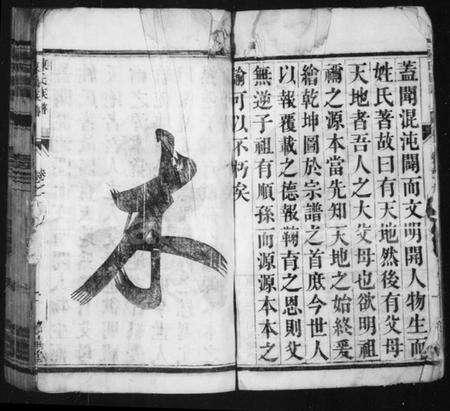 蓋聞混沌闢而文明開人物生而
姓氏著故曰有天地然後有父母
天地者吾人之大父母也欲明祖
禰之源本當先知天地之始終爰
繪乾坤圖於宗譜之首庶今世人
以報覆載之德報鞠育之恩則父
無逆子祖有順孫而源源本本之
論可以不朽矣
本
陳氏族譜
卷之